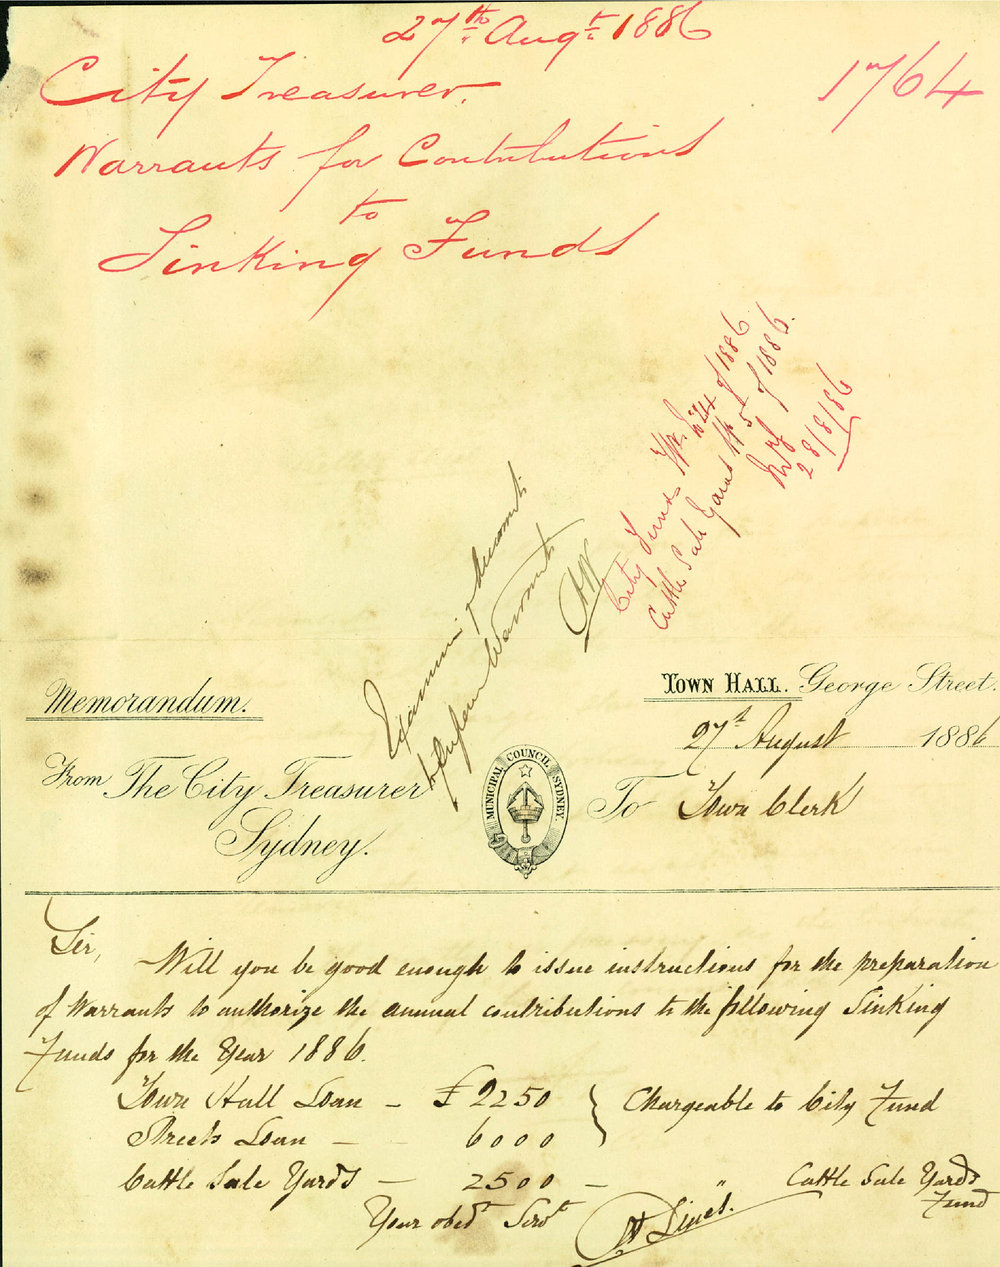 27th Augt 1886
1764
City Treasurer.
Warrants for Contributions
to
Sinking Funds
City Fund Wt. No 244 of 1886
Cattle Sale Yards Wt 5 of 1886.
28/8/86
Examiner of Accounts
Warrants
Memorandum.
TOWN HALL. George Street.
27th August 1886
From The City Treasurer
Sydney.
MUNICIPAL COUNCIL SYDNEY.
To Town Clerk
Sir,
Will you be good enough to issue instructions for the preparation
of Warrants to authorize the annual contributions to the following Sinking
Funds for the Year 1886.
Town Hall Loan – £2250 } Chargeable to City Fund
Streets Loan – 6000
Cattle Sale Yards – 2500 – " Cattle Sale Yards
Fund
Your obedt Servt